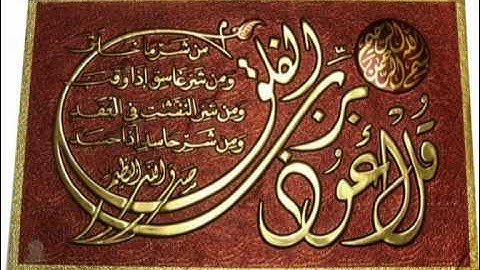 بسم الله الرحمن الرحيم
قل أعوذ برب الفلق
من شر ما خلق
ومن شر غاسق إذا وقب
ومن شر النفثت في العقد
ومن شر حاسد إذا حسد
صدق الله العظيم